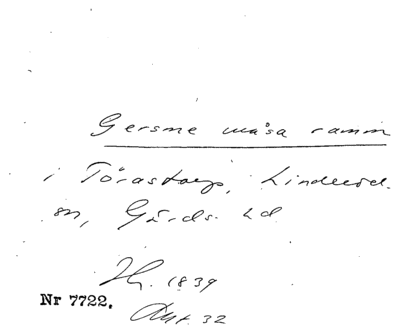 Gersme måsa ramm
i Törastorp, Linderöd.
sn, Gärds hd
Hg. 1839
Nr 7722.
Avst. 32